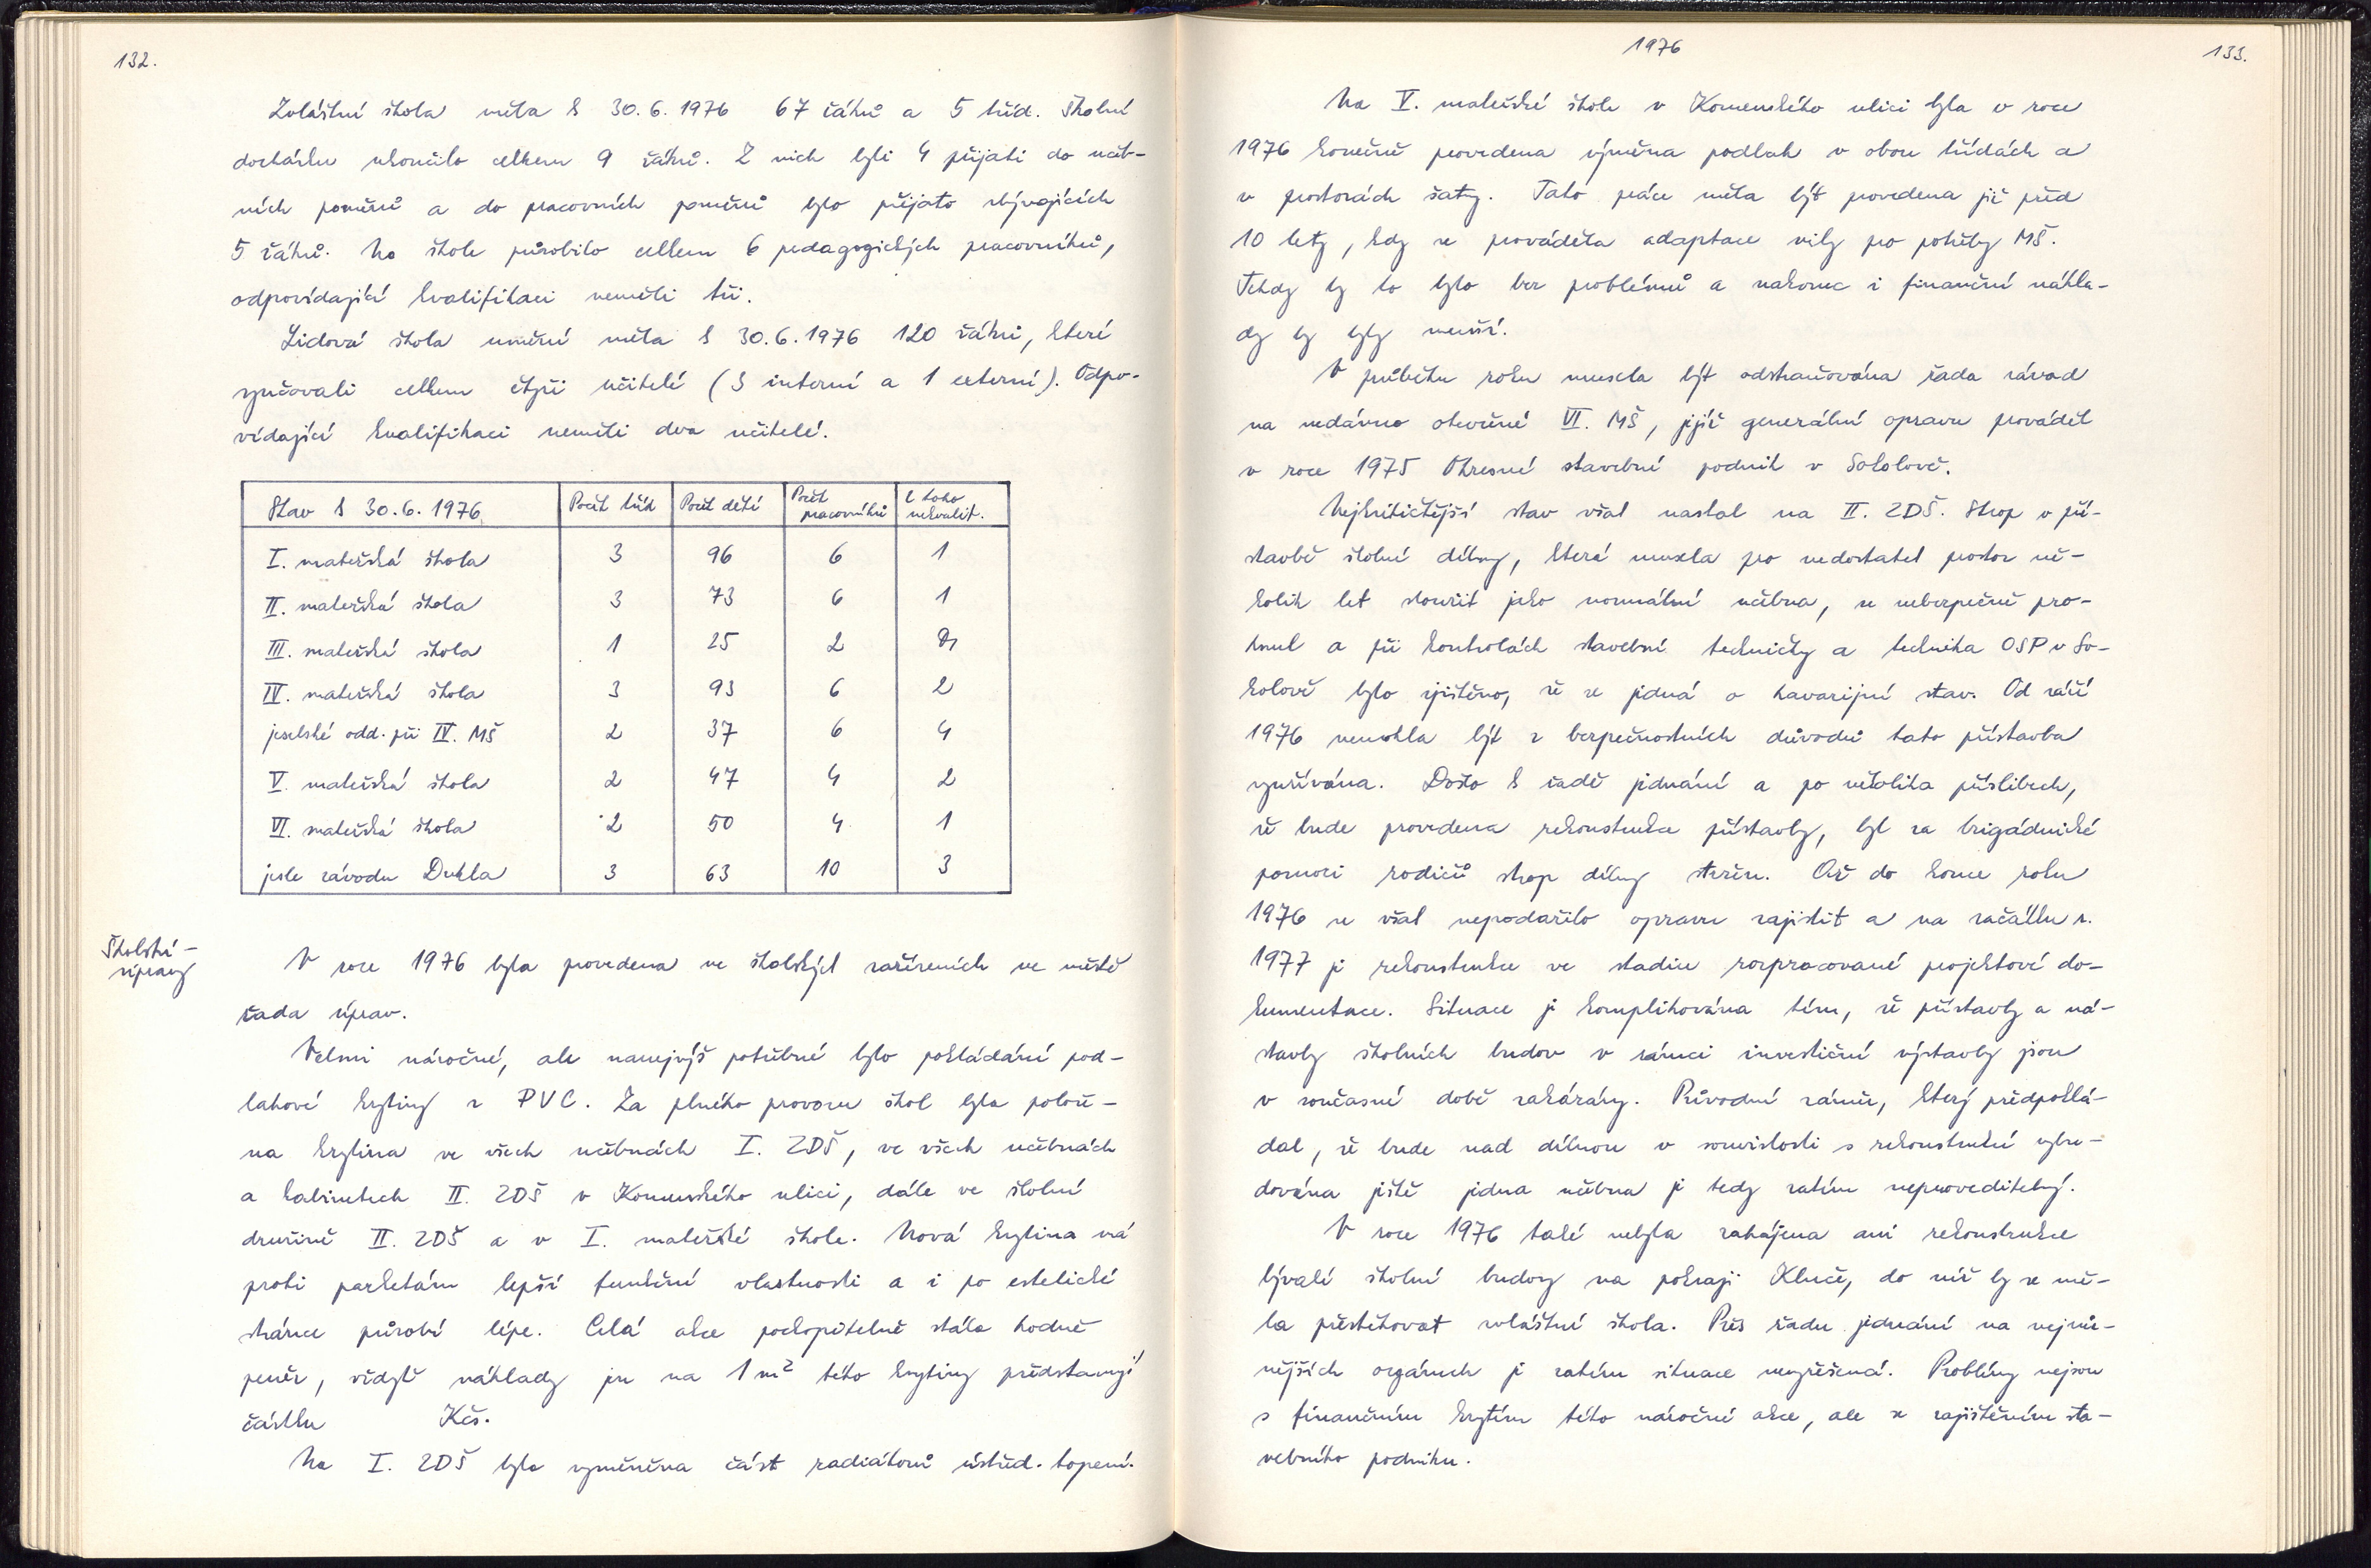 132.
Zvláštní škola měla k 30.6.1976 67 žáků a 5 tříd. Školní
docházku ukončilo celkem 9 žáků. Z nich byli 4 přijati do učeb-
ních poměrů a do pracovních poměrů bylo přijato zbývajících
5 žáků. Na škole působilo celkem 6 pedagogických pracovníků,
odpovídající kvalifikaci neměli tři.
Lidová škola umění měla k 30.6.1976 120 žáků, které
vyučovali celkem čtyři učitelé (3 interní a 1 externí). Odpo-
vídající kvalifikaci neměli dva učitelé.
Stav k 30.6.1976 Počet tříd Počet dětí Počet pracovníků Z toho nekvalif.
I. mateřská škola 3 96 6 1
II. mateřská škola 3 73 6 1
III. mateřská škola 1 25 2
IV. mateřská škola 3 93 6 2
jeselské odd. při IV. MŠ 2 37 6 4
V. mateřská škola 2 47 4 2
VI. mateřská škola 2 50 4 1
jesle závodu Dukla 3 63 10 3
Školství –
úpravy
V roce 1976 byla provedena ve školských zařízeních ve městě
řada úprav.
Velmi náročné, ale nanejvýš potřebné bylo pokládání pod-
lahové krytiny z PVC. Za plného provozu škol byla polože-
na krytina ve všech učebnách I. ZDŠ, ve všech učebnách
a kabinetech II. ZDŠ v Komenského ulici, dále ve školní
družině II. ZDŠ a v I. mateřské škole. Nová krytina má
proti parketám lepší funkční vlastnosti a i po estetické
stránce působí lépe. Celá akce pochopitelně stála hodně
peněz, vždyť náklady jen na 1 m² této krytiny představují
částku Kčs.
Na I. ZDŠ byla vyměněna část radiátorů ústřed. topení.
1976
133.
Na V. mateřské škole v Komenského ulici byla v roce
1976 konečně provedena výměna podlah v obou třídách a
v prostorách šatny. Tato práce měla být provedena již před
10 lety, kdy se prováděla adaptace vily pro potřeby MŠ.
Tehdy by to bylo bez problémů a nakonec i finanční nákla-
dy by byly menší.
V průběhu roku musela být odstraňována řada závad
na nedávno otevřené VI. MŠ, jejíž generální opravu prováděl
v roce 1975 Okresní stavební podnik v Sokolově.
Nejkritičtější stav však nastal na II. ZDŠ. Strop v pří-
stavbě školní dílny, která musela pro nedostatek prostor ně-
kolik let sloužit jako normální učebna, se nebezpečně pro-
hnul a při kontrolách stavební techničky a technika OSP v So-
kolově bylo zjištěno, že se jedná o havarijní stav. Od září
1976 nemohla být z bezpečnostních důvodů tato přístavba
využívána. Došlo k řadě jednání a po několika příslibech,
že bude provedena rekonstrukce přístavby, byl za brigádnické
pomoci rodičů strop dílny stržen. Až do konce roku
1976 se však nepodařilo opravu zajistit a na začátku r.
1977 je rekonstrukce ve stadiu rozpracované projektové do-
kumentace. Situace je komplikována tím, že přístavby a ná-
stavby školních budov v rámci investiční výstavby jsou
v současné době zakázány. Původní záměr, který předpoklá-
dal, že bude nad dílnou v souvislosti s rekonstrukcí vybu-
dována ještě jedna učebna je tedy zatím neproveditelný.
V roce 1976 také nebyla zahájena ani rekonstrukce
bývalé školní budovy na pokraji Kluče, do níž by se mě-
la přestěhovat zvláštní škola. Přes řadu jednání na nejrůz-
nějších orgánech je zatím situace nevyřešená. Problémy nejsou
s finančním krytím této náročné akce, ale se zajištěním sta-
vebního podniku.